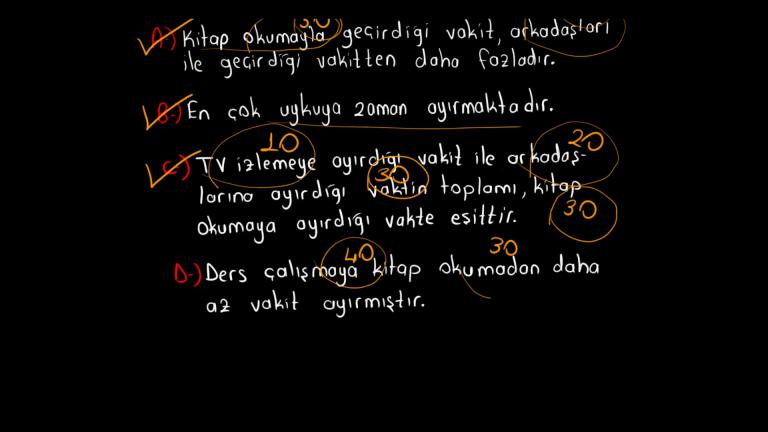 30
A) Kitap okumayla geçirdiği vakit, arkadaşları
ile geçirdiği vakitten daha fazladır.
B-) En çok uykuya zaman ayırmaktadır.
10 20
C) TV izlemeye ayırdığı vakit ile arkadaş-
30
larına ayırdığı vaktin toplamı, kitap
30
okumaya ayırdığı vakte eşittir.
40 30
D-) Ders çalışmaya kitap okumadan daha
az vakit ayırmıştır.